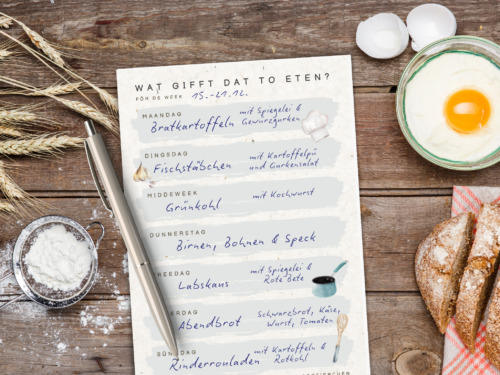 WAT GIFFT DAT TO ETEN?
FÖR DE WEEK 15.-21.12.
MAANDAG
Bratkartoffeln mit Spiegelei &
Gewürzgurken
DINGSDAG
Fischstäbchen mit Kartoffelpü
und Gurkensalat
MIDDEWEEK
Grünkohl mit Kochwurst
DUNNERSTAG
Birnen, Bohnen & Speck
REEDAG
Labskaus mit Spiegelei &
Rote Bete
ERDAG
Abendbrot Schwarzbrot, Käse,
Wurst, Tomaten
SÜNNDAG
Rinderrouladen mit Kartoffeln &
Rotkohl